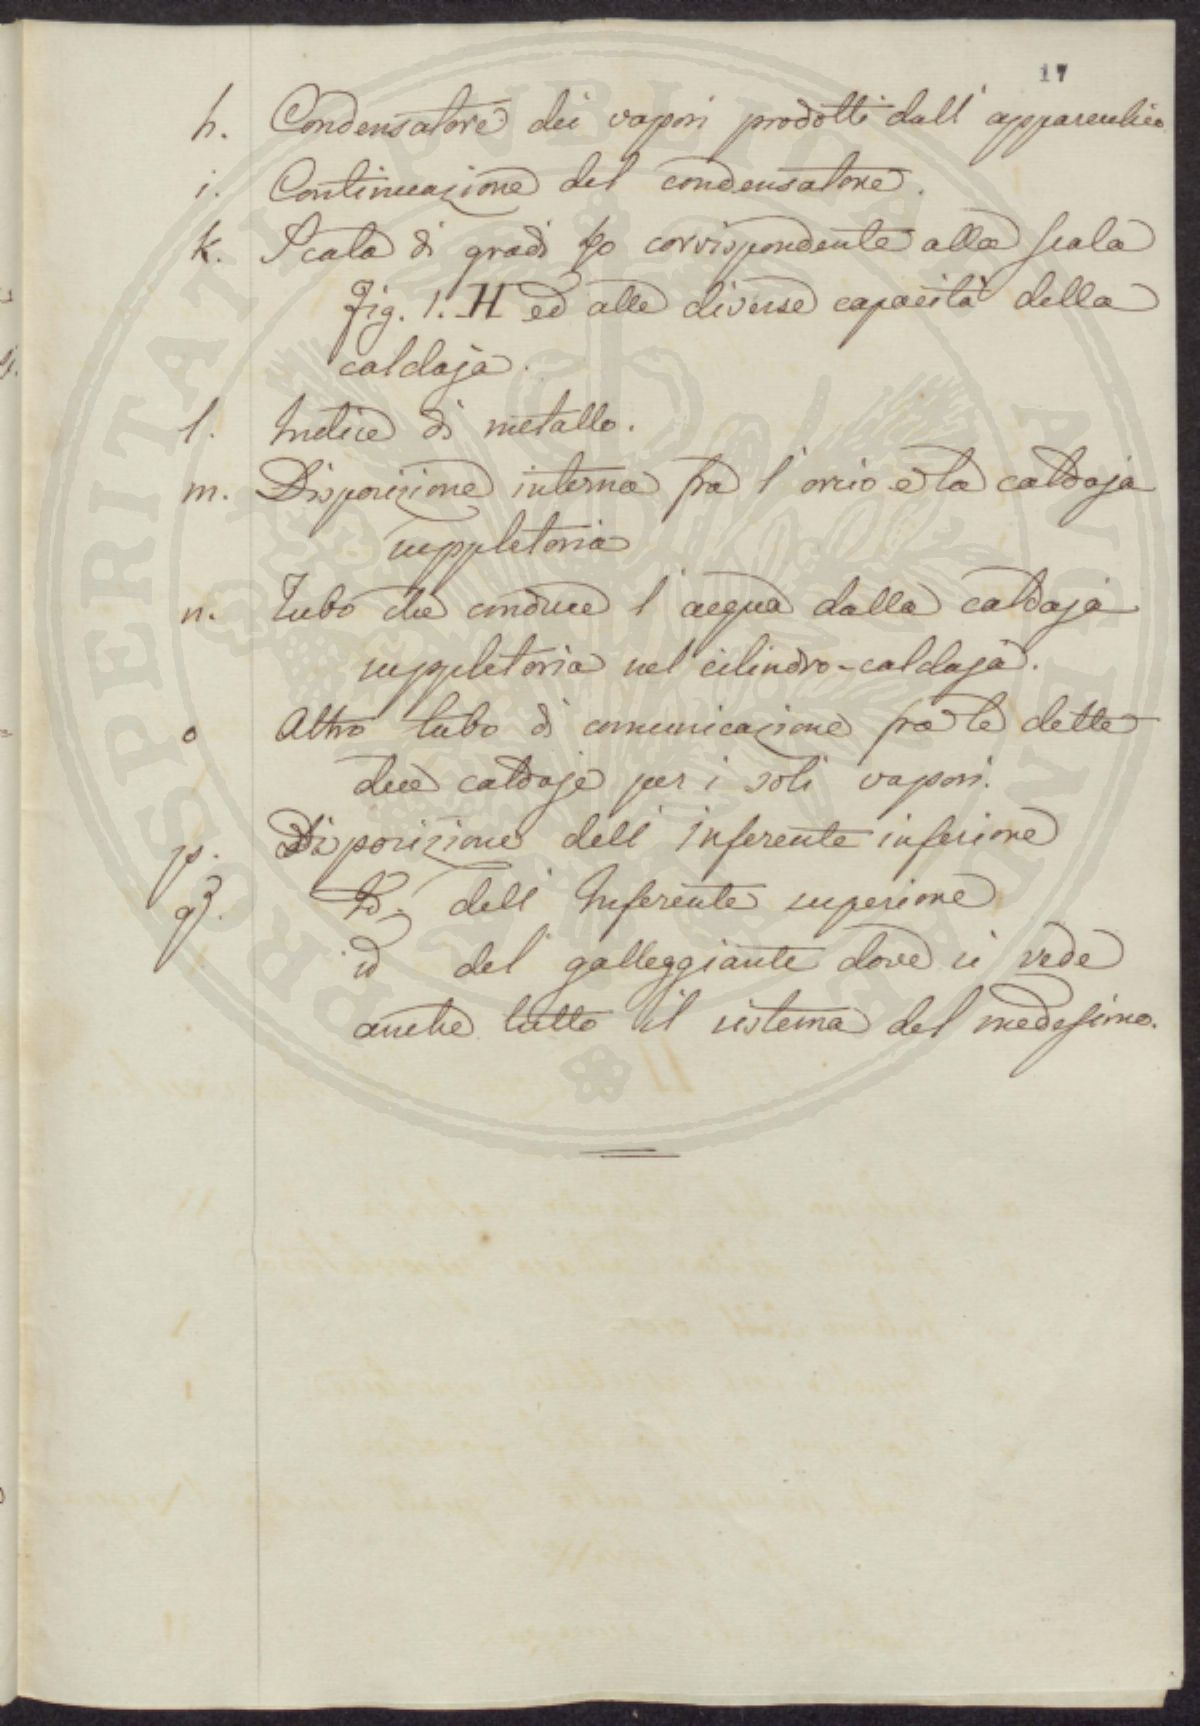 17
h. Condensatore dei vapori prodotti dall'
i. Continuazione del condensatore.
k. Scala di gradi 80 corrispondente alla scala
Fig. 1. H ed alle diverse capacità della
caldaja.
l. Indice di metallo.
m. Disposizione interna fra l'orcio e la caldaja
suppletoria
n. Tubo che conduce l'acqua dalla caldaja
suppletoria nel cilindro-caldaja.
o Altro tubo di comunicazione fra le dette
due caldaje per i soli vapori.
p. Disposizione dell'inferente inferiore
q. Id. dell'Inferente superiore
id del galleggiante dove si vede
anche tutto il sistema del medesimo.
PROSPERITATI PUBLICAE AUGENDAE